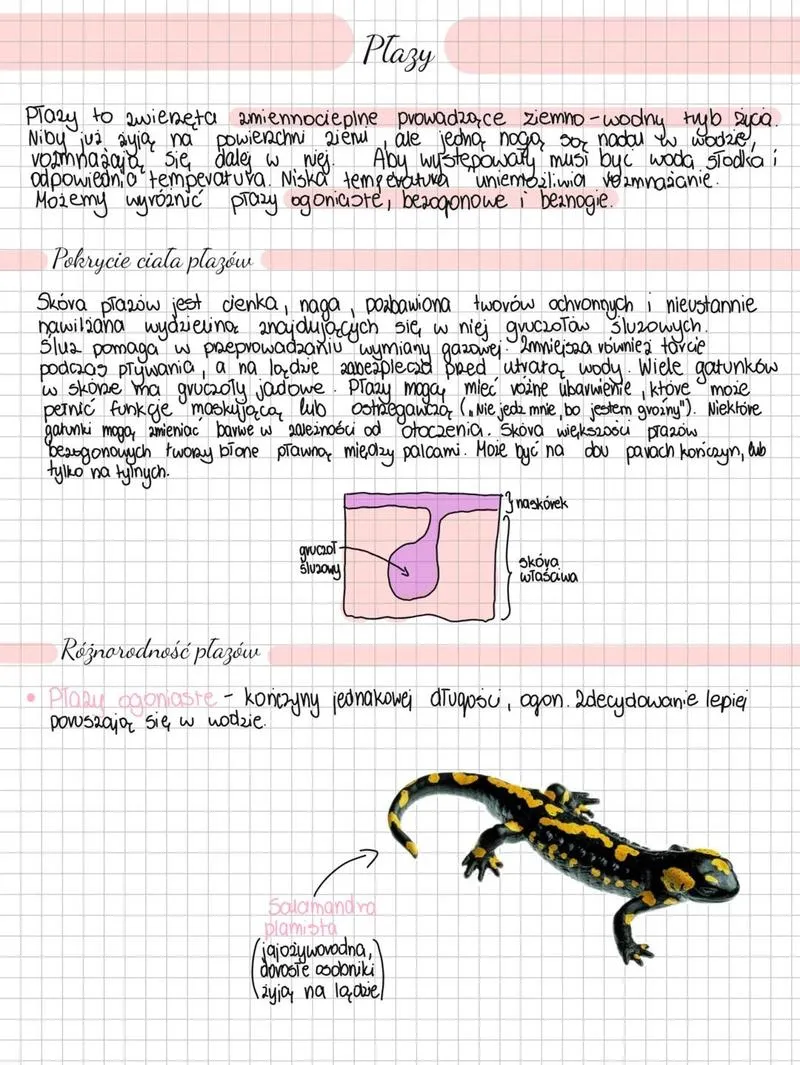 Płazy
Płazy to zwierzęta zmiennocieplne prowadzące ziemno-wodny tryb życia.
Niby już żyją na powierzchni ziemi, ale jedną nogą są nadal w wodzie,
rozmnażają się dalej w niej. Aby występowały musi być woda słodka i
odpowiednia temperatura. Niska temperatura uniemożliwia rozmnażanie.
Możemy wyróżnić płazy ogoniaste, bezogonowe i beznogie.
Pokrycie ciała płazów
Skóra płazów jest cienka, naga, pozbawiona tworów ochronnych i nieustannie
nawilżana wydzieliną znajdujących się w niej gruczołów śluzowych.
Śluz pomaga w przeprowadzaniu wymiany gazowej. Zmniejsza również tarcie
podczas pływania, a na lądzie zabezpiecza przed utratą wody. Wiele gatunków
w skórze ma gruczoły jadowe. Płazy mogą mieć różne ubarwienie, które może
pełnić funkcje maskującą lub ostrzegawczą („Nie jedz mnie, bo jestem groźny"). Niektóre
gatunki mogą zmieniać barwę w zależności od otoczenia. Skóra większości płazów
bezogonowych tworzy błonę pławną między palcami. Może być na obu parach kończyn, lub
tylko na tylnych.
naskórek
gruczoł
śluzowy
skóra
właściwa
Różnorodność płazów
• Płazy ogoniaste - kończyny jednakowej długości, ogon. Zdecydowanie lepiej
poruszają się w wodzie.
Salamandra
plamista
(jajożyworodna,
dorosłe osobniki
żyją na lądzie)